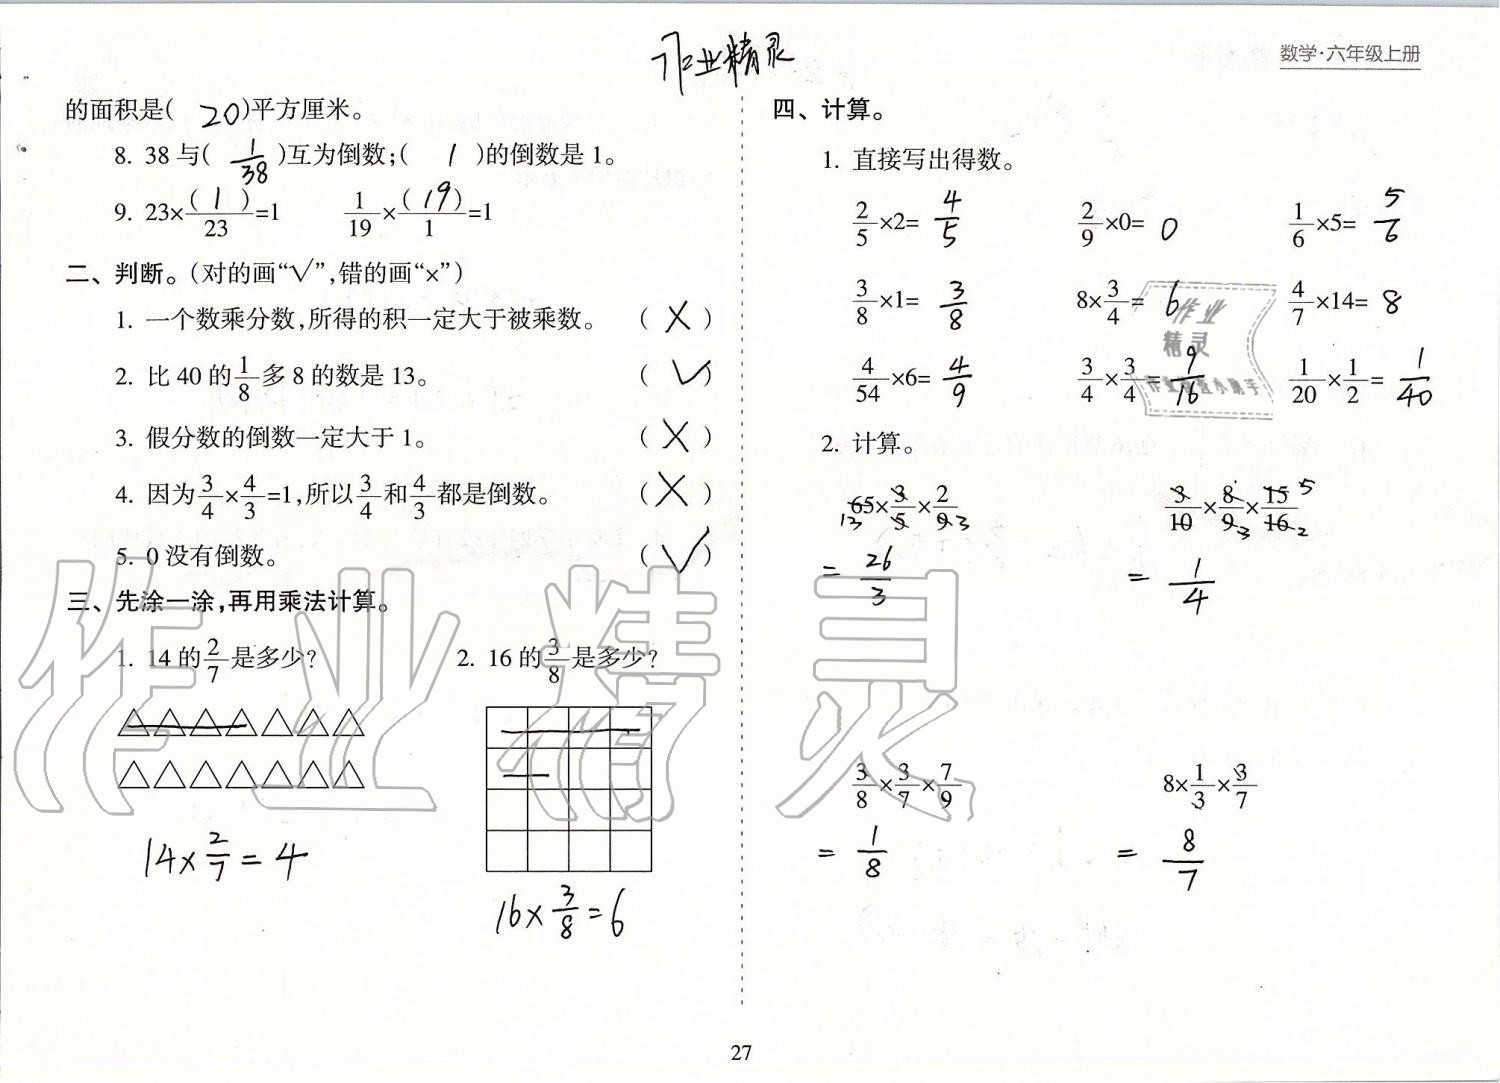 作业精灵
数学·六年级上册
的面积是( 20 )平方厘米。
8. 38与( 1/38 )互为倒数;( 1 )的倒数是1。
9. 23×( 1 )/23=1 1/19×( 19 )/1=1
二、判断。(对的画“√”,错的画“×”)
1. 一个数乘分数,所得的积一定大于被乘数。 ( × )
2. 比40的1/8多8的数是13。 ( √ )
3. 假分数的倒数一定大于1。 ( × )
4. 因为3/4×4/3=1,所以3/4和4/3都是倒数。 ( × )
5. 0没有倒数。 ( √ )
三、先涂一涂,再用乘法计算。
1. 14的2/7是多少?
2. 16的3/8是多少?
14×2/7=4
16×3/8=6
四、计算。
1. 直接写出得数。
2/5×2= 4/5 2/9×0= 0 1/6×5= 5/6
3/8×1= 3/8 8×3/4= 6 4/7×14= 8
4/54×6= 4/9 3/4×3/4= 9/16 1/20×1/2= 1/40
2. 计算。
65×3/5×2/9 3/10×8/9×15/16
13 3 5 3 2
= 26/3 = 1/4
3/8×3/7×7/9 8×1/3×3/7
= 1/8 = 8/7
作业
精灵
作业检查小助手
作业精灵
27